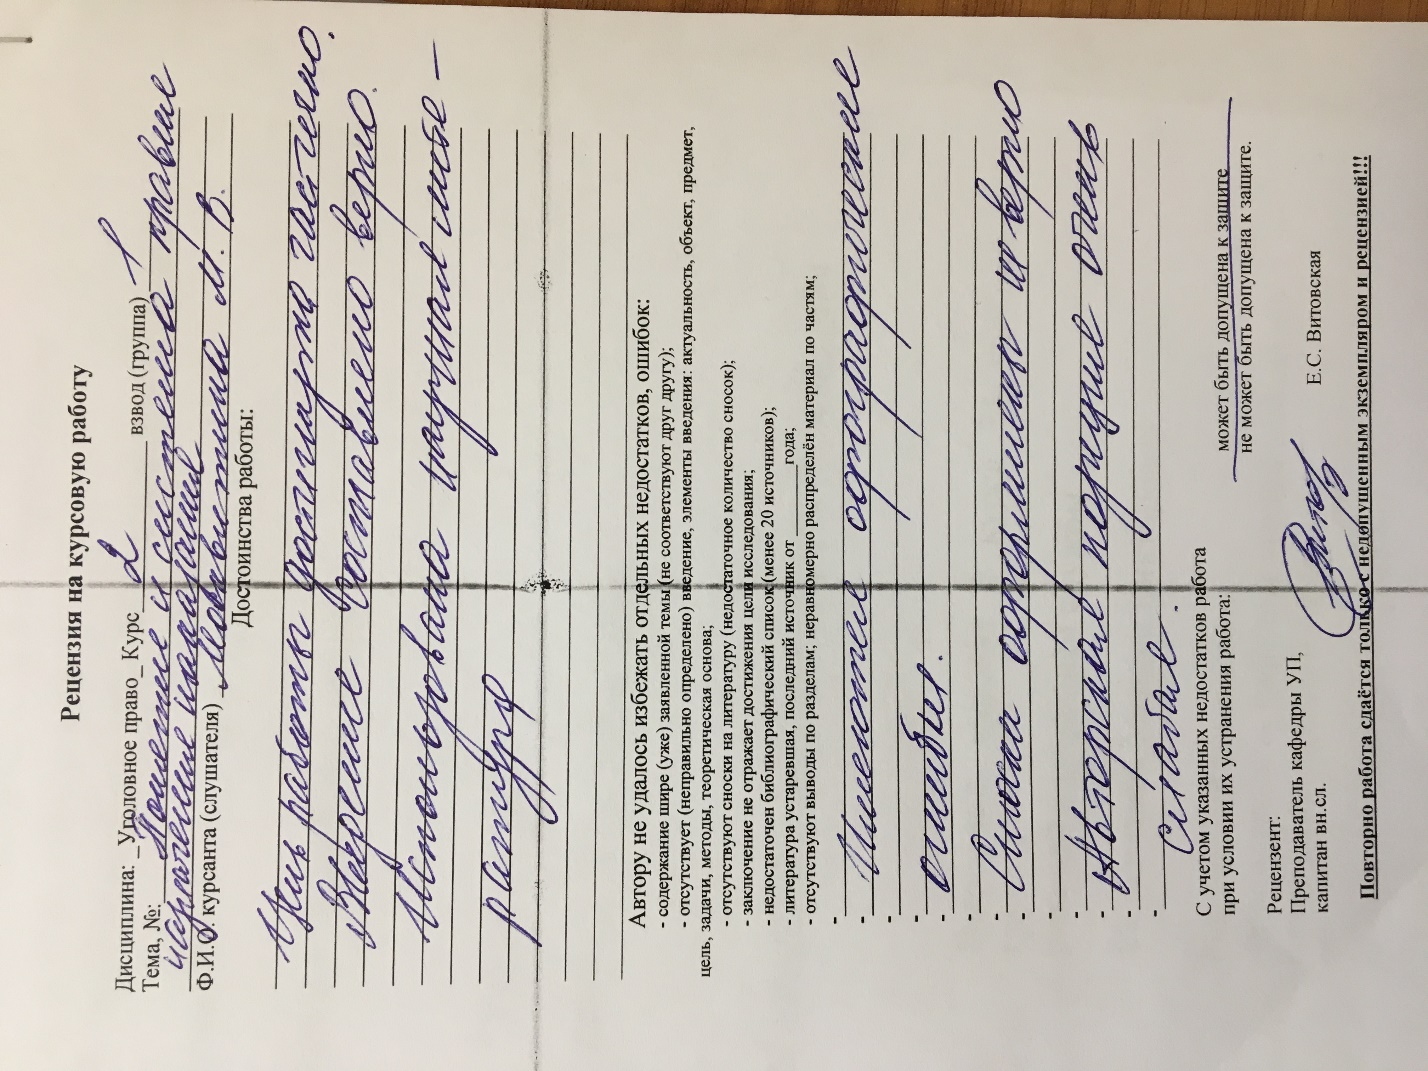 Рецензия на курсовую работу
Дисциплина: _Уголовное право_ Курс 2 взвод (группа) 1
Тема, №: Понятие и система правил
назначения наказания
Ф.И.О. курсанта (слушателя) М. В.
Достоинства работы:
Цель работы достигнута частично.
Введение составлено верно.
Использована научная лите-
ратура
Автору не удалось избежать отдельных недостатков, ошибок:
- содержание шире (уже) заявленной темы (не соответствуют друг другу);
- отсутствует (неправильно определено) введение, элементы введения: актуальность, объект, предмет,
цель, задачи, методы, теоретическая основа;
- отсутствуют сноски на литературу (недостаточное количество сносок);
- заключение не отражает достижения цели исследования;
- недостаточен библиографический список (менее 20 источников);
- литература устаревшая, последний источник от ______ года;
- отсутствуют выводы по разделам; неравномерно распределён материал по частям;
- орфографические
- ошибки.
- Сноски оформлены не верно
- Авторские позиции очень
- слабые.
С учетом указанных недостатков работа может быть допущена к защите
при условии их устранения работа: не может быть допущена к защите.
Рецензент:
Преподаватель кафедры УП,
капитан вн.сл. Е.С. Витовская
Повторно работа сдаётся только с недопущенным экземпляром и рецензией!!!